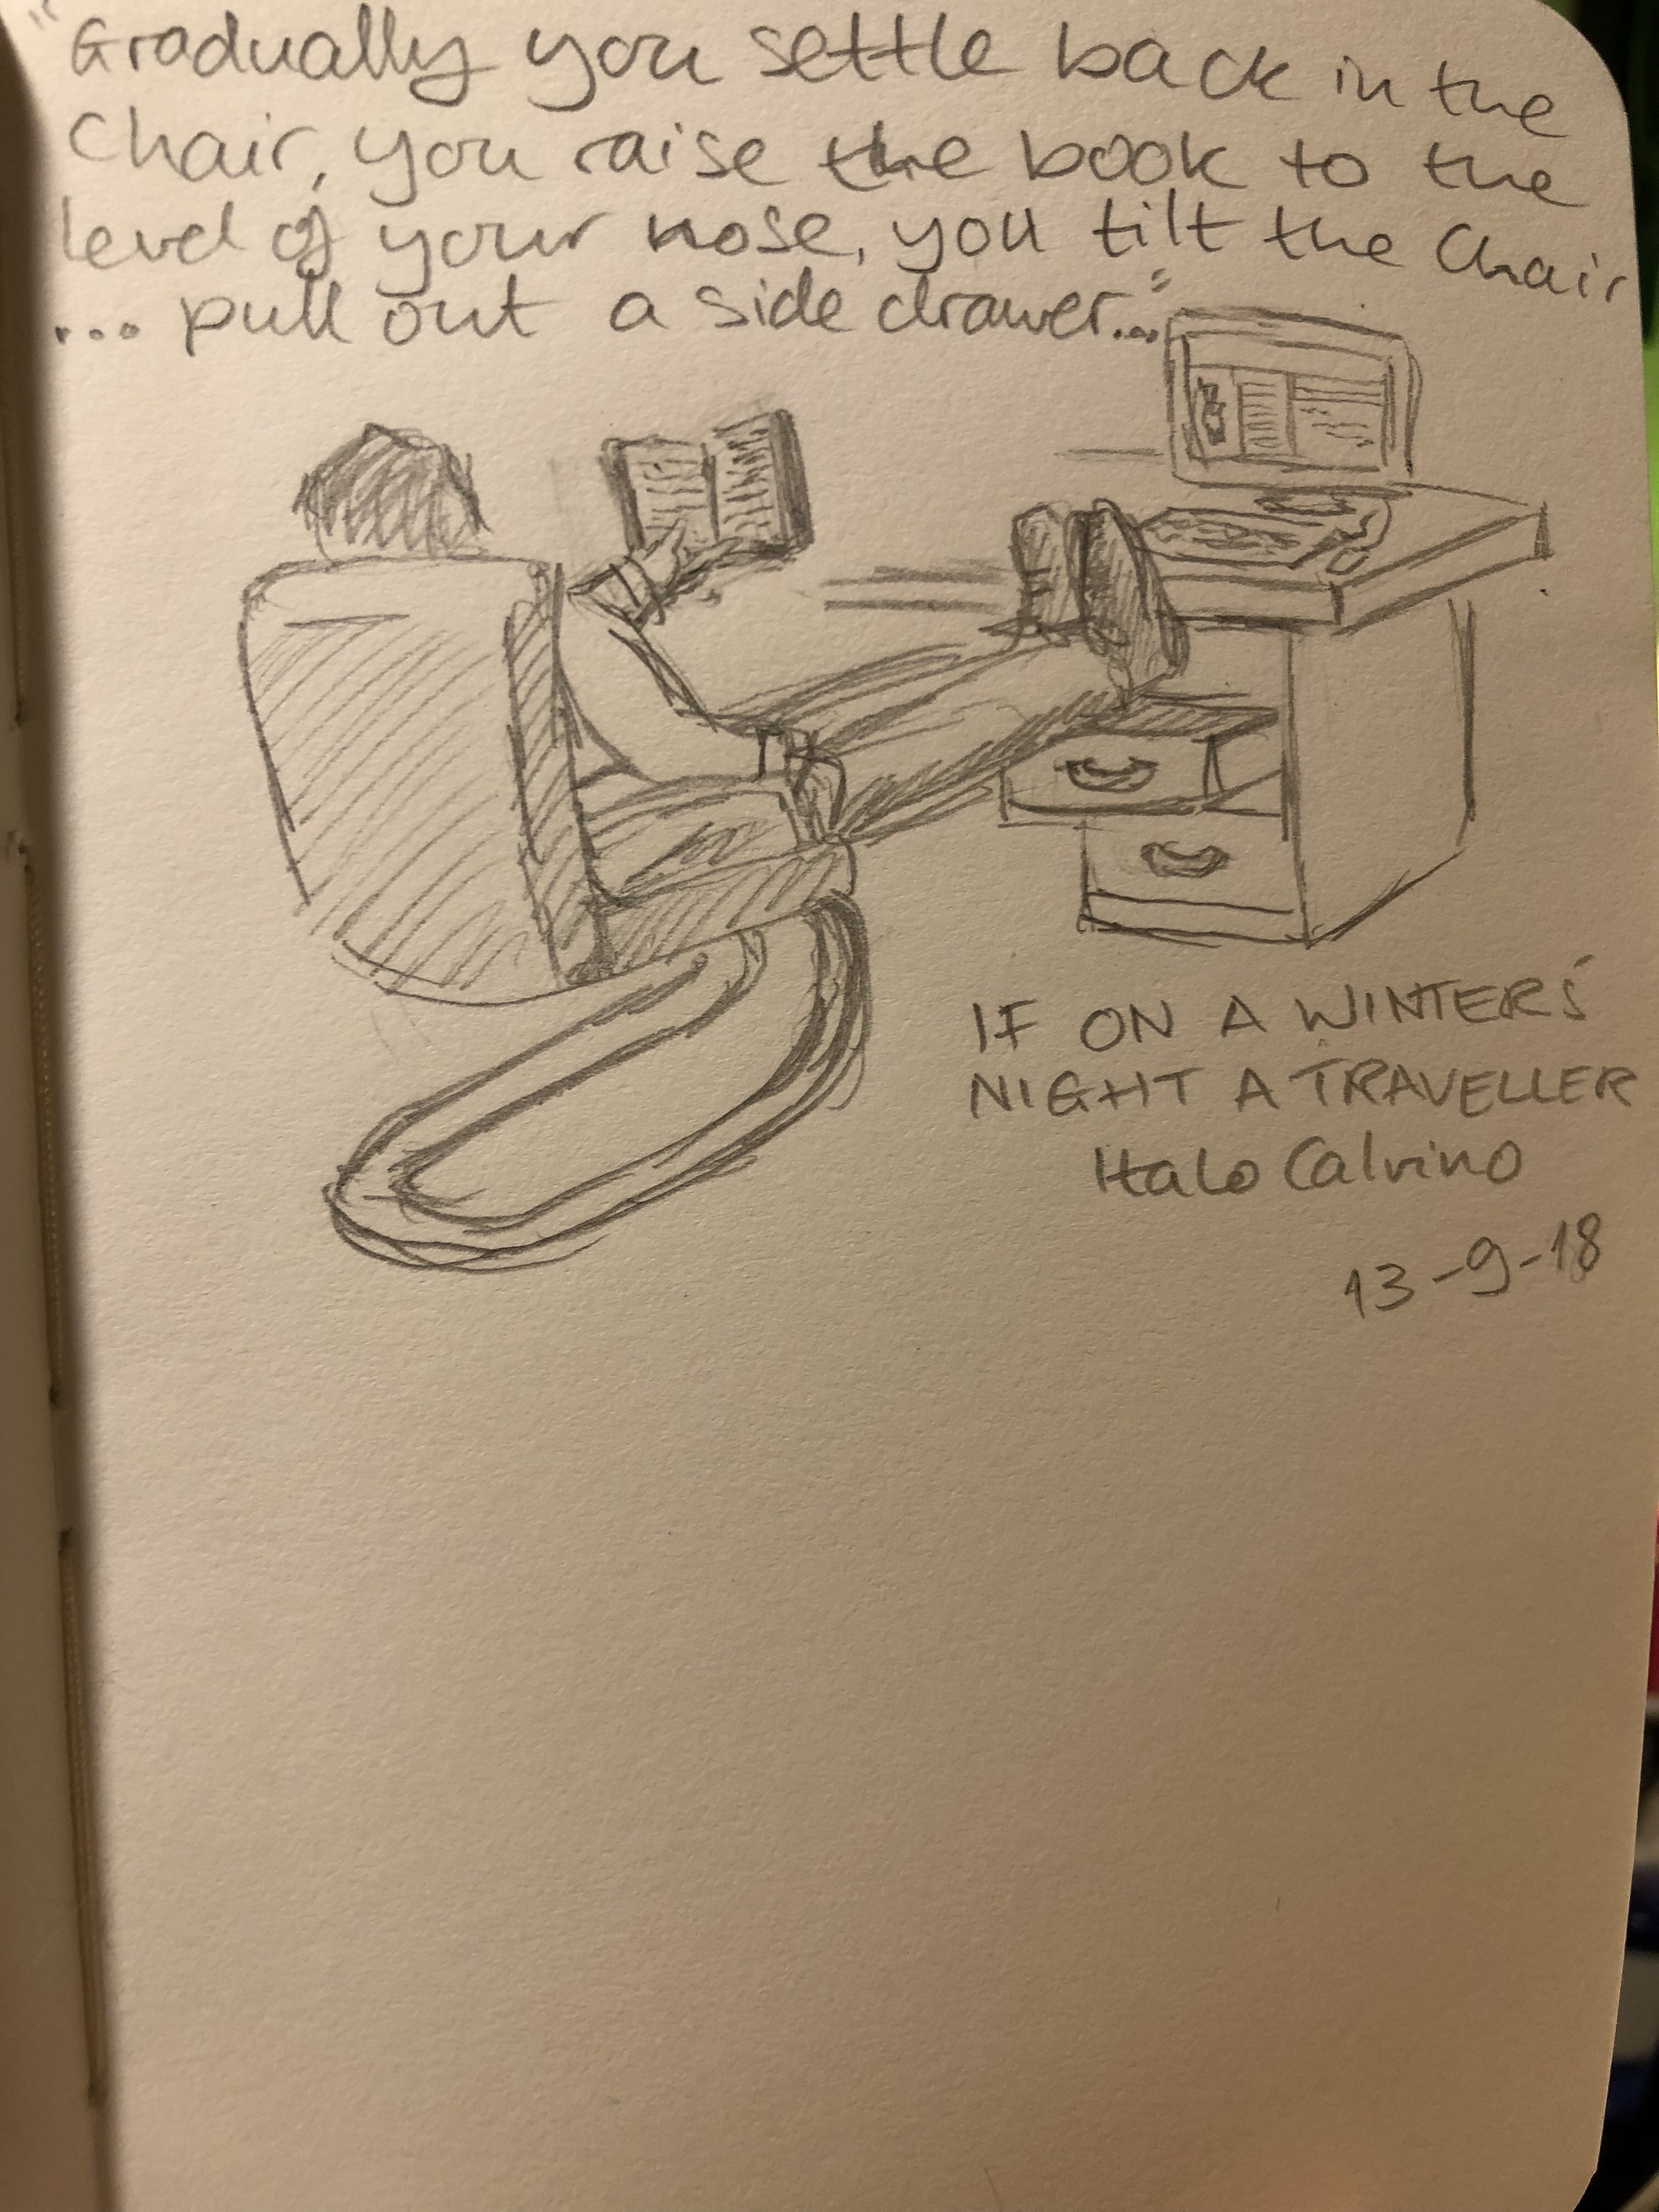 "Gradually you settle back in the
chair, you raise the book to the
level of your nose, you tilt the chair
... pull out a side drawer..."
IF ON A WINTER'S
NIGHT A TRAVELLER
Italo Calvino
13-9-18